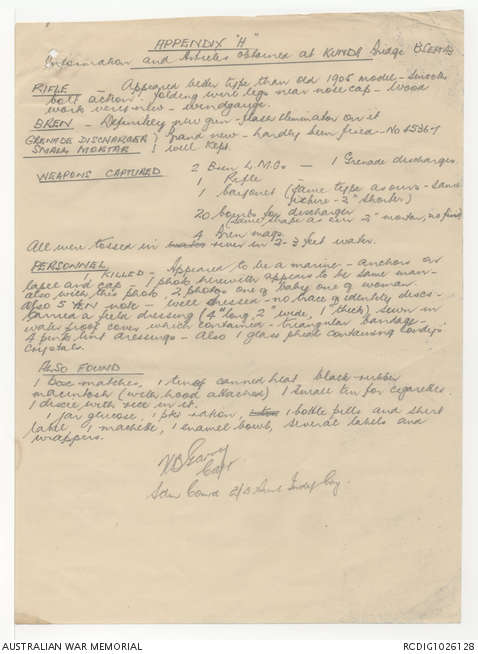 APPENDIX "A"
Information and Articles obtained at KUNDI Bridge
RIFLE - Appeared better type than old 1905 model - Smooth
bolt action. Folding wire legs near nose cap - wood
work very new - windgauge.
BREN - Definitely new gun - flash eliminator on it
GRENADE DISCHARGER) Brand new - hardly been fired - No 25367
SMALL MORTAR ) well kept.
WEAPONS CAPTURED 2 Bren L.M.Gs - 1 Grenade discharger
1 Rifle
1 bayonet (same type as ours - same
fixture - 2" shorter)
20 bombs for discharger
(same shape as our 2" mortar, no fins)
4 Bren mags.
All were tossed in river in 2-3 feet water.
PERSONNEL
1 KILLED - Appeared to be a marine - anchors on
lapel and cap. 1 photo herewith appears to be same man -
also with this photo, 2 photos one of baby one of woman.
Also 5 YEN note - well dressed - no trace of identity discs -
Carried a field dressing (4" long, 2" wide, 1" thick) sewn in
waterproof cover which contained - triangular bandage -
4 pink lint dressings - Also 1 glass phial containing Condy's
crystals.
ALSO FOUND
1 box matches, 1 tin of canned heat, black rubber
macintosh (with hood attached) 1 small tin for cigarettes
1 dixie with rice in it.
1 jar glucose, 1 pkt ration, 1 bottle pills and sheet
label, 1 machete, 1 enamel bowl, several labels and
wrappers.
Capt
Comd 2/3 Aust Indep Coy.
AUSTRALIAN WAR MEMORIAL
RCDIG1026128